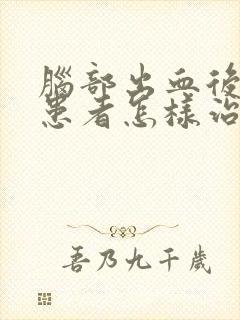 腦部出血後
患者怎樣治
吾乃九千歲